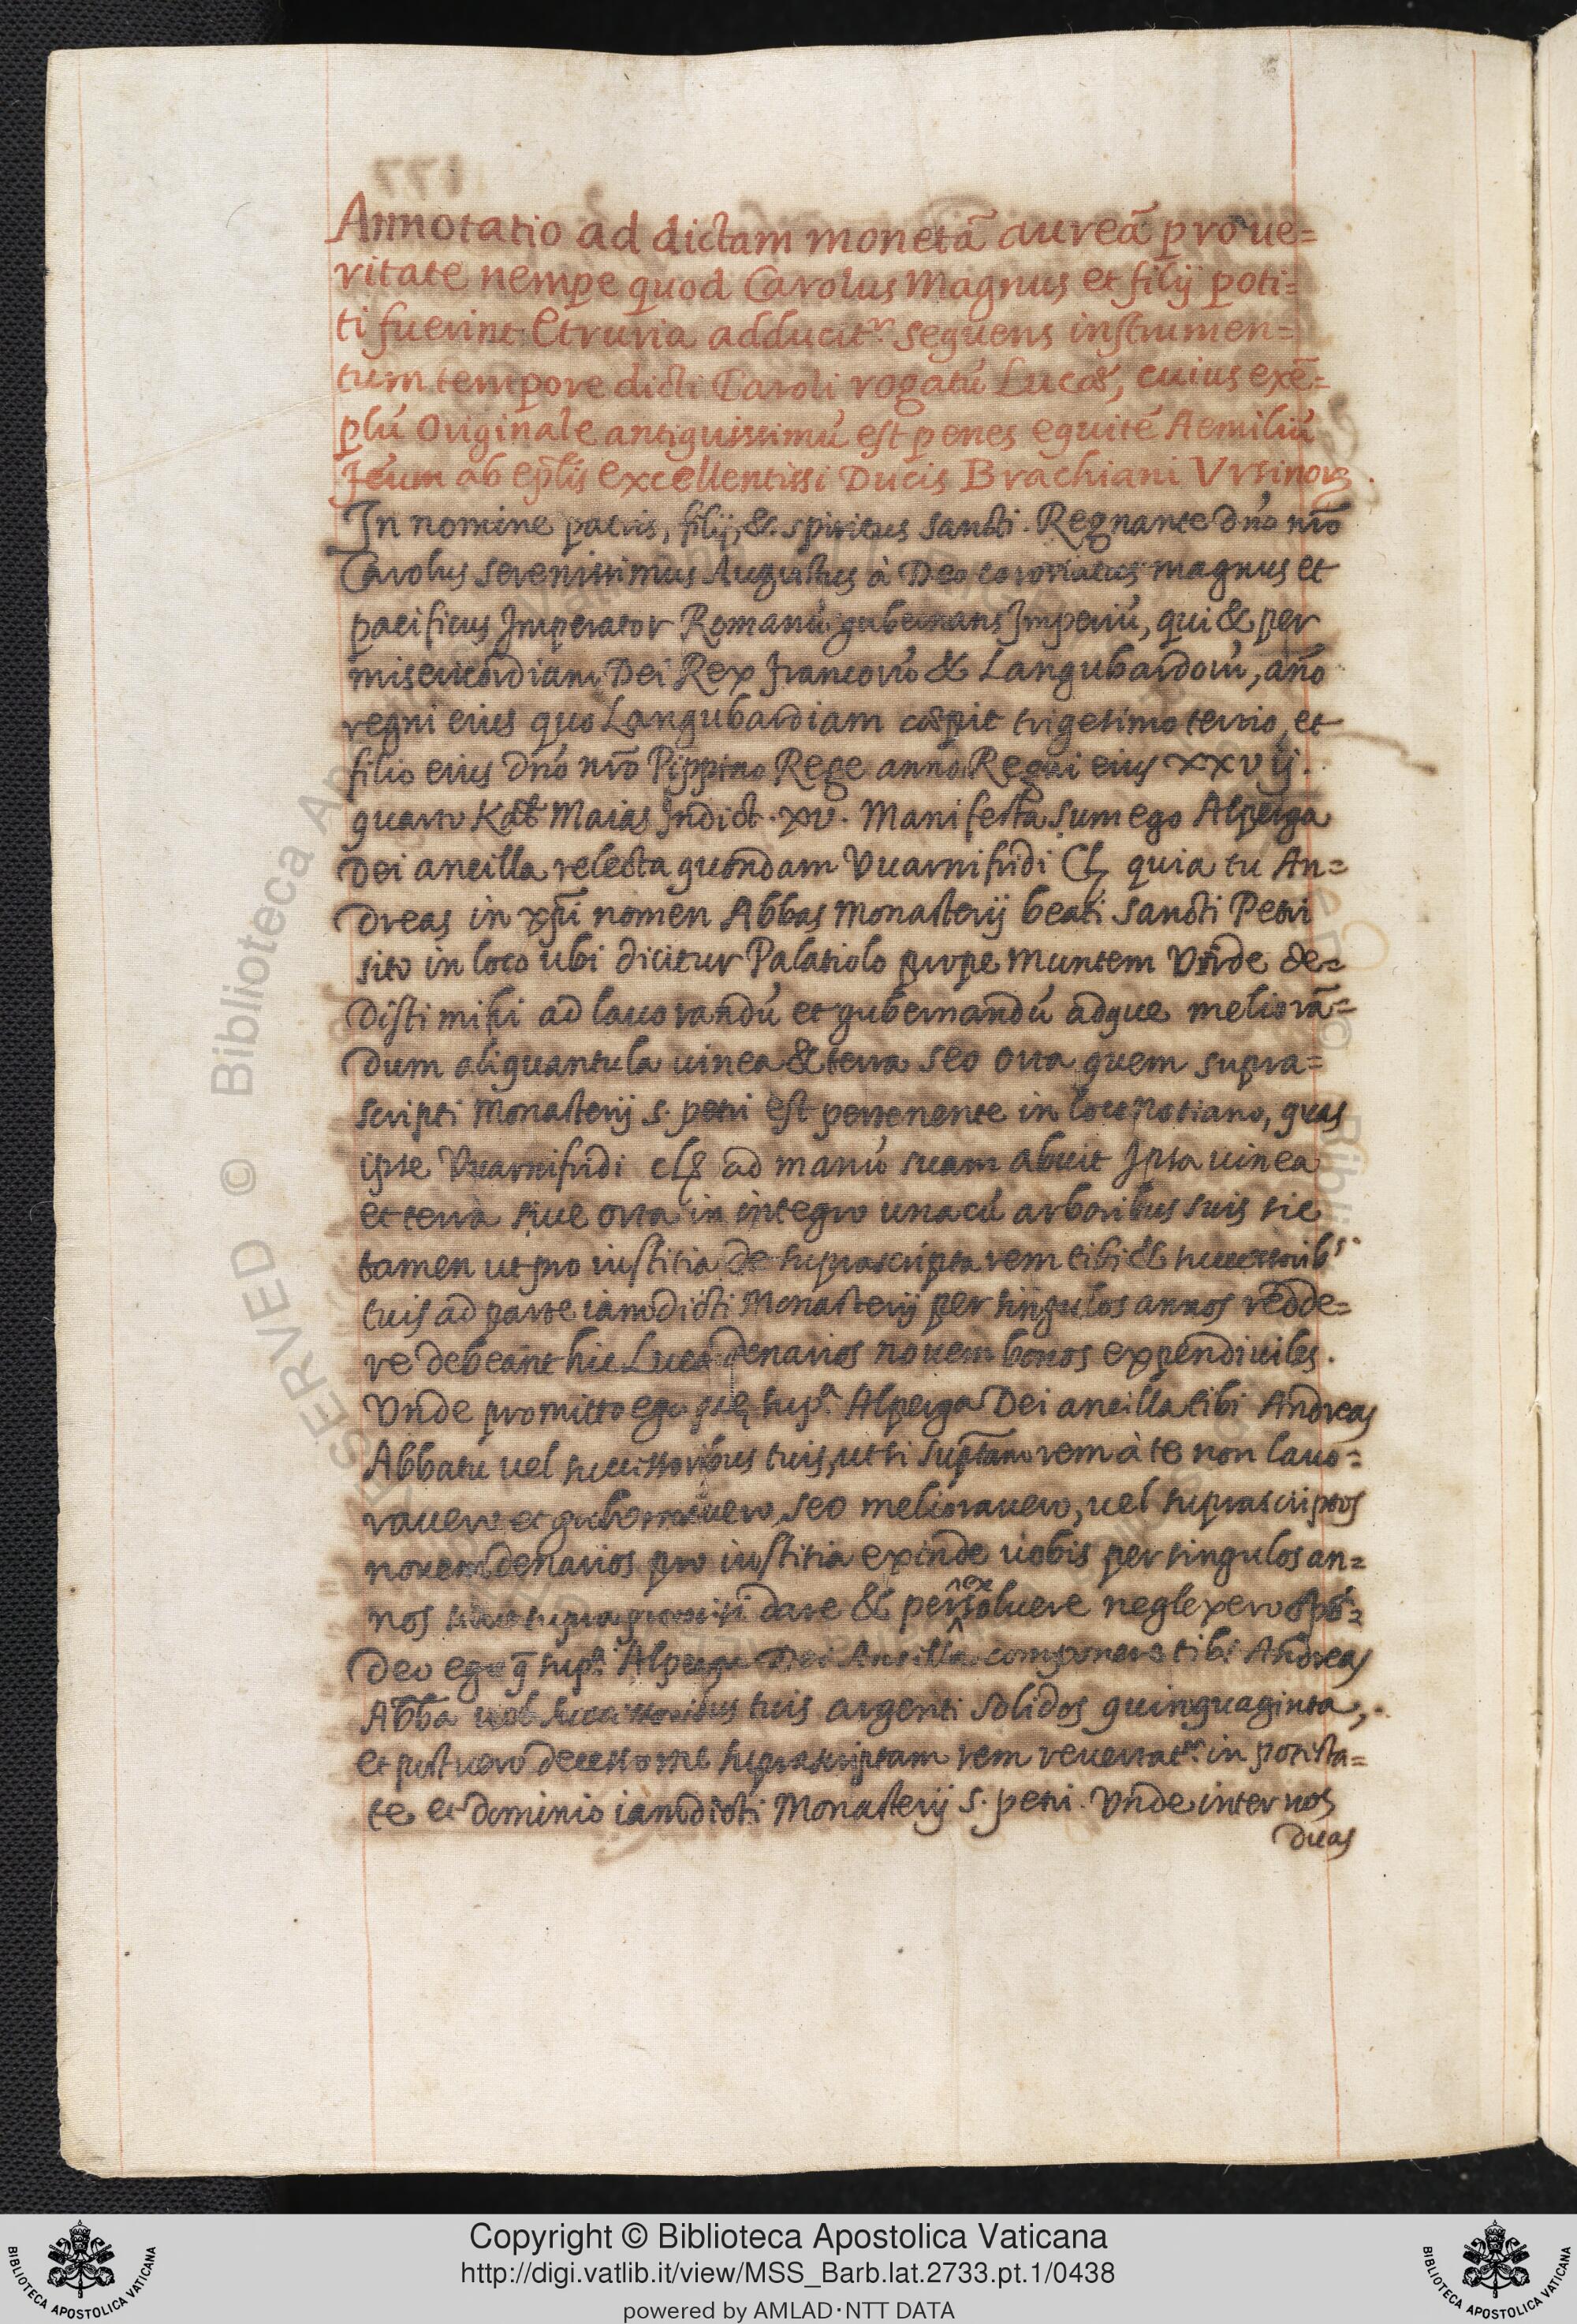 Annotatio ad dictam monetã aureã pro ue=
ritate nempe quod Carolus Magnus et filij poti=
ti fuerint Etruria adducitʳ sequens instrumen=
tum tempore dicti Caroli rogatũ Lucæ, cuius exẽ=
plũ Originale antiquissimũ est penes equitẽ Aemiliũ
ab ep̃lis excellentissi Ducis Brachiani Vrsinoꝝ.
In nomine patris, filij, & spiritus sancti. Regnante dño nr̃o
Carolus serenissimus Augustus à Deo coronatus magnus et
pacificus Imperator Romanũ gubernans Imperiũ, qui & per
misericordiam Dei Rex francorũ & Langubardorũ, año
regni eius quo Langubardiam cœpit trigesimo tertio, et
filio eius dño nr̃o Pippino Rege anno Regni eius xxvij.
quarto Kał Maias Indict. xv. Manifesta sum ego Alperga
Dei ancilla relecta quondam Vuarnifridi Cl quia tu An=
dreas in xp̃i nomen Abbas Monasterij beati Sancti Petri
sito in loco ubi dicitur Palatiolo prope muntem Vnde de=
disti mihi ad lauorandũ et gubernandũ adque meliorã=
dum aliquantula uinea & terra seo orta quem supra=
scripti Monasterij s. petri est pertenente in loco Potiano, quas
iste Vuarnifridi cl ad manũ suam abuit Ipsa uinea
et terra siue orta in integro unacũ arboribus suis sic
tamen ut pro iustitia de suprascripta rem tibi & successoribˢ
tuis ad parte iamdicti Monasterij per singulos annos redde=
re debeant hic Luca denarios nouem bonos expendiuiles.
Vnde promitto ego supᵃ. Alperga Dei ancilla tibi Andreas
Abbatũ uel successoribus tuis, ut si sup̃tam rem à te non lauo=
rauero et gubernauero, seo meliorauero, uel suprascriptos
nouem denarios pro iustitia exinde uobis per singulos an=
nos sicut supra promisi dare & per^ex^soluere neglexero spõ=
deo ego q̃ supᵃ. Alperga Dei Ancilla componere tibi Andreas
Abba uel successoribus tuis argenti solidos quinquaginta,
et post uero decesso me suprascriptam rem reuertatʳ in potesta=
te et dominio iamdicti Monasterij S. petri. Vnde inter nos
duas
Biblioteca
Copyright © Biblioteca Apostolica Vaticana
http://digi.vatlib.it/view/MSS_Barb.lat.2733.pt.1/0438
powered by AMLAD·NTT DATA
BIBLIOTECA APOSTOLICA VATICANA
BIBLIOTECA APOSTOLICA VATICANA